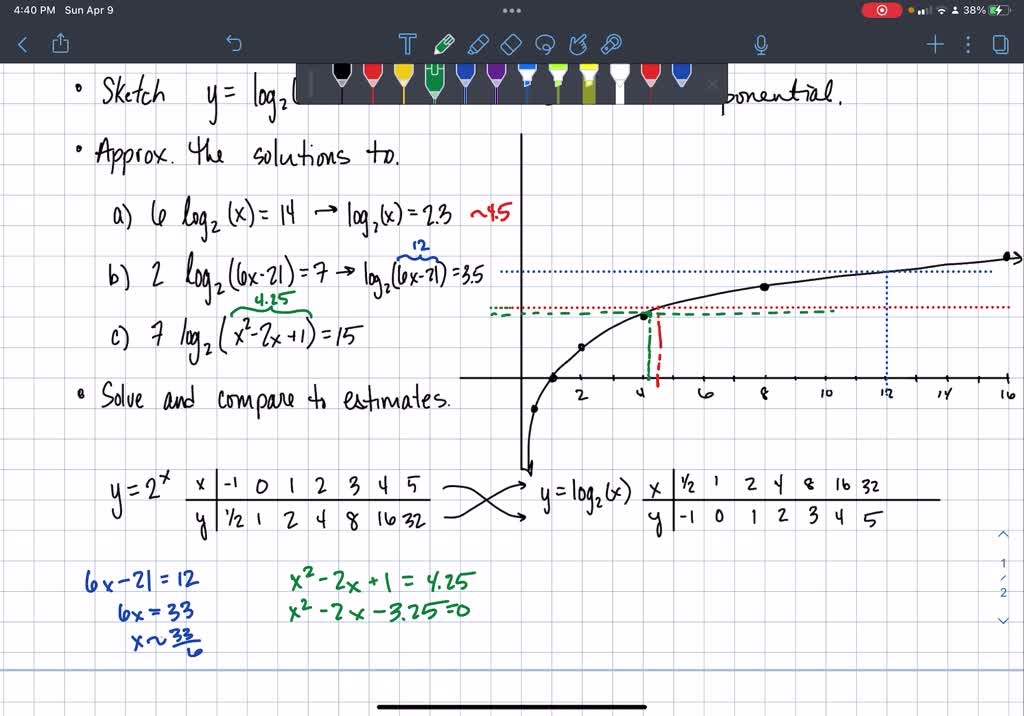 4:40 PM Sun Apr 9
38%
• Sketch y = log₂( ponential.
• Approx. the solutions to.
a) 6 log₂(x) = 14 → log₂(x) = 2.3 ~4.5
12
b) 2 log₂(6x-21) = 7 → log₂(6x-21) = 3.5
4.25
c) 7 log₂(x²-2x+1) = 15
2 4 6 8 10 12 14 16
• Solve and compare to estimates.
y = 2ˣ x | -1 0 1 2 3 4 5
y | 1/2 1 2 4 8 16 32
y = log₂(x) x | 1/2 1 2 4 8 16 32
y | -1 0 1 2 3 4 5
6x-21 = 12
6x = 33
x ~ 33/6
x² - 2x + 1 = 4.25
x² - 2x - 3.25 = 0
1
/
2